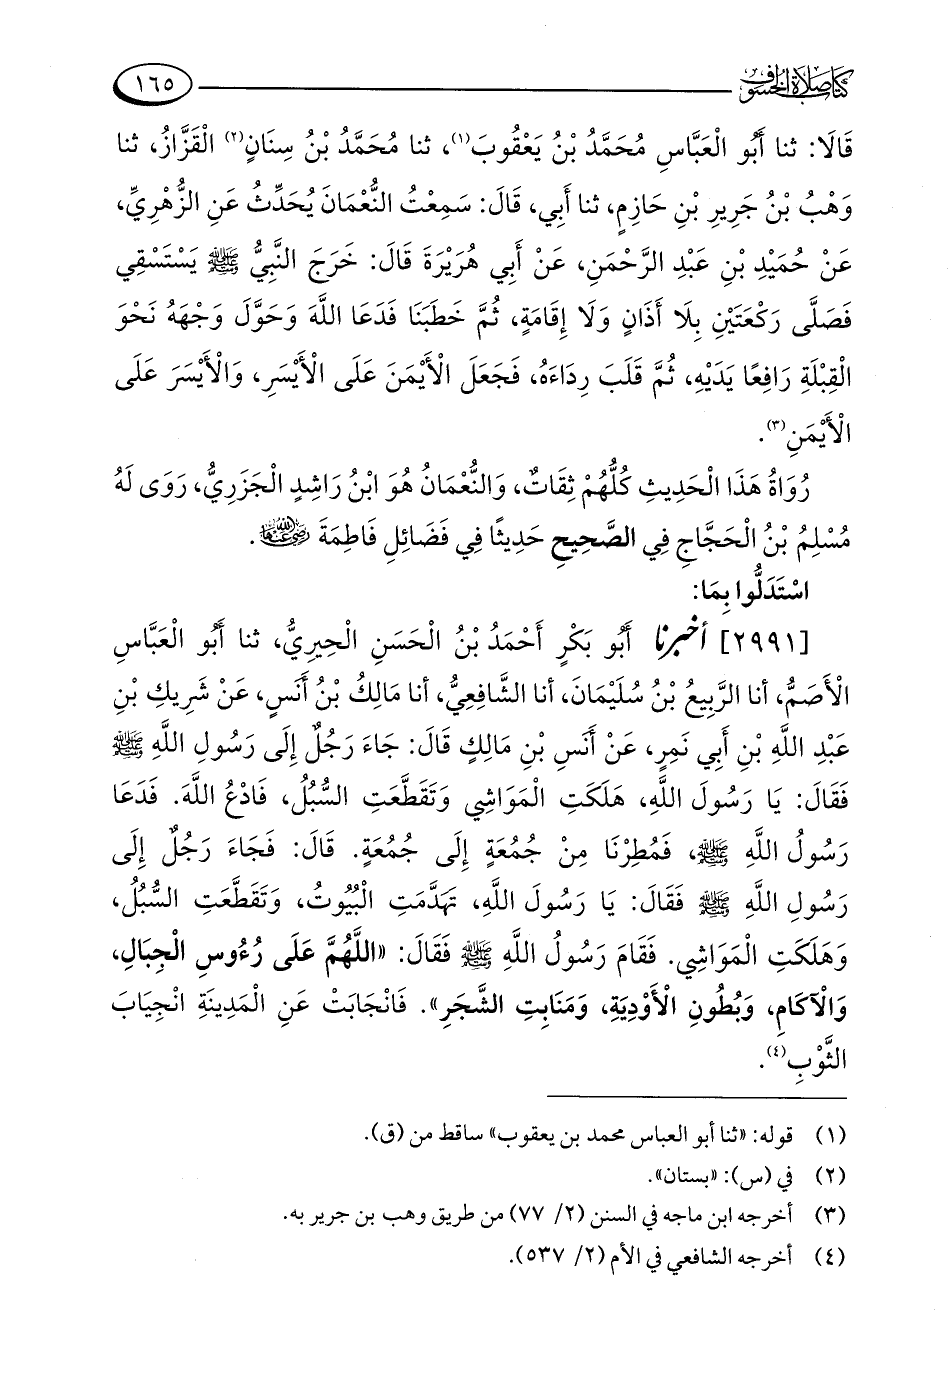 كتاب صلاة الخسوف ١٦٥
قَالَا: ثنا أَبُو الْعَبَّاسِ مُحَمَّدُ بْنُ يَعْقُوبَ(١)، ثنا مُحَمَّدُ بْنُ سِنَانٍ(٢) الْقَزَّازُ، ثنا
وَهْبُ بْنُ جَرِيرِ بْنِ حَازِمٍ، ثنا أَبِي، قَالَ: سَمِعْتُ النُّعْمَانَ يُحَدِّثُ عَنِ الزُّهْرِيِّ،
عَنْ حُمَيْدِ بْنِ عَبْدِ الرَّحْمَنِ، عَنْ أَبِي هُرَيْرَةَ قَالَ: خَرَجَ النَّبِيُّ ﷺ يَسْتَسْقِي
فَصَلَّى رَكْعَتَيْنِ بِلَا أَذَانٍ وَلَا إِقَامَةٍ، ثُمَّ خَطَبَنَا فَدَعَا اللَّهَ وَحَوَّلَ وَجْهَهُ نَحْوَ
الْقِبْلَةِ رَافِعًا يَدَيْهِ، ثُمَّ قَلَبَ رِدَاءَهُ، فَجَعَلَ الْأَيْمَنَ عَلَى الْأَيْسَرِ، وَالْأَيْسَرَ عَلَى
الْأَيْمَنِ(٣).
رُوَاةُ هَذَا الْحَدِيثِ كُلُّهُمْ ثِقَاتٌ، وَالنُّعْمَانُ هُوَ ابْنُ رَاشِدٍ الْجَزَرِيُّ، رَوَى لَهُ
مُسْلِمُ بْنُ الْحَجَّاجِ فِي الصَّحِيحِ حَدِيثًا فِي فَضَائِلِ فَاطِمَةَ رضي الله عنها.
اسْتَدَلُّوا بِمَا:
[٢٩٩١] أخبرنا أَبُو بَكْرٍ أَحْمَدُ بْنُ الْحَسَنِ الْحِيرِيُّ، ثنا أَبُو الْعَبَّاسِ
الْأَصَمُّ، أنا الرَّبِيعُ بْنُ سُلَيْمَانَ، أنا الشَّافِعِيُّ، أنا مَالِكُ بْنُ أَنَسٍ، عَنْ شَرِيكِ بْنِ
عَبْدِ اللَّهِ بْنِ أَبِي نَمِرٍ، عَنْ أَنَسِ بْنِ مَالِكٍ قَالَ: جَاءَ رَجُلٌ إِلَى رَسُولِ اللَّهِ ﷺ
فَقَالَ: يَا رَسُولَ اللَّهِ، هَلَكَتِ الْمَوَاشِي وَتَقَطَّعَتِ السُّبُلُ، فَادْعُ اللَّهَ. فَدَعَا
رَسُولُ اللَّهِ ﷺ، فَمُطِرْنَا مِنْ جُمُعَةٍ إِلَى جُمُعَةٍ. قَالَ: فَجَاءَ رَجُلٌ إِلَى
رَسُولِ اللَّهِ ﷺ فَقَالَ: يَا رَسُولَ اللَّهِ، تَهَدَّمَتِ الْبُيُوتُ، وَتَقَطَّعَتِ السُّبُلُ،
وَهَلَكَتِ الْمَوَاشِي. فَقَامَ رَسُولُ اللَّهِ ﷺ فَقَالَ: «اللَّهُمَّ عَلَى رُءُوسِ الْجِبَالِ،
وَالْآكَامِ، وَبُطُونِ الْأَوْدِيَةِ، وَمَنَابِتِ الشَّجَرِ». فَانْجَابَتْ عَنِ الْمَدِينَةِ انْجِيَابَ
الثَّوْبِ(٤).
(١) قوله: «ثنا أبو العباس محمد بن يعقوب» ساقط من (ق).
(٢) في (س): «بستان».
(٣) أخرجه ابن ماجه في السنن (٢/ ٧٧) من طريق وهب بن جرير به.
(٤) أخرجه الشافعي في الأم (٢/ ٥٣٧).